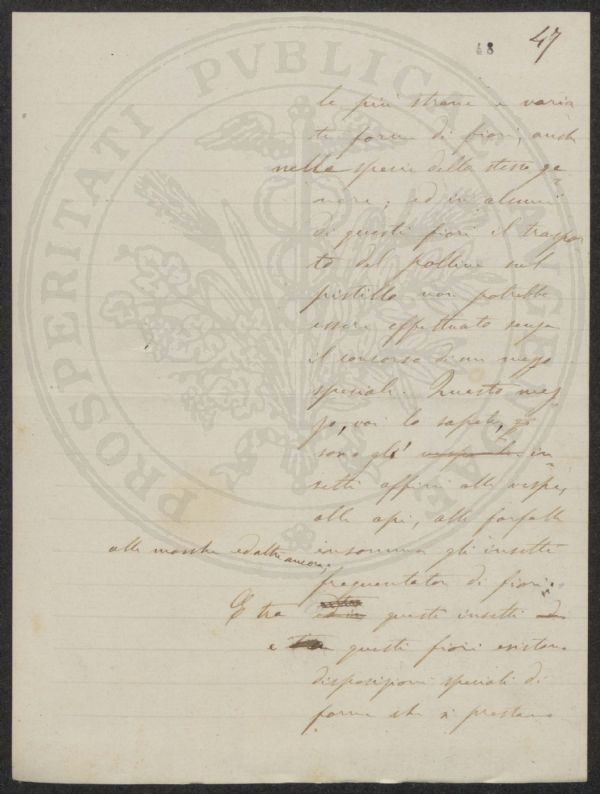 48 47
le più strane e varia
te forme di fiori, anche
nelle specie dello stesso ge
nere; ed in alcuni
di questi fiori il traspor
to del polline sul
pistillo non potrebbe
essere effettuato senza
il concorso di un mezzo
speciale. Questo mez
zo, voi lo sapete,
sono gli in
setti affini alle vespe,
alle api, alle farfalle
alle mosche ed altri ancora,
insomma gli insetti
frequentatori di fiori.
E tra questi insetti
e questi fiori esistono
disposizioni speciali di
forme che si prestano
PROSPERITATI PVBLICAE AVGENDAE